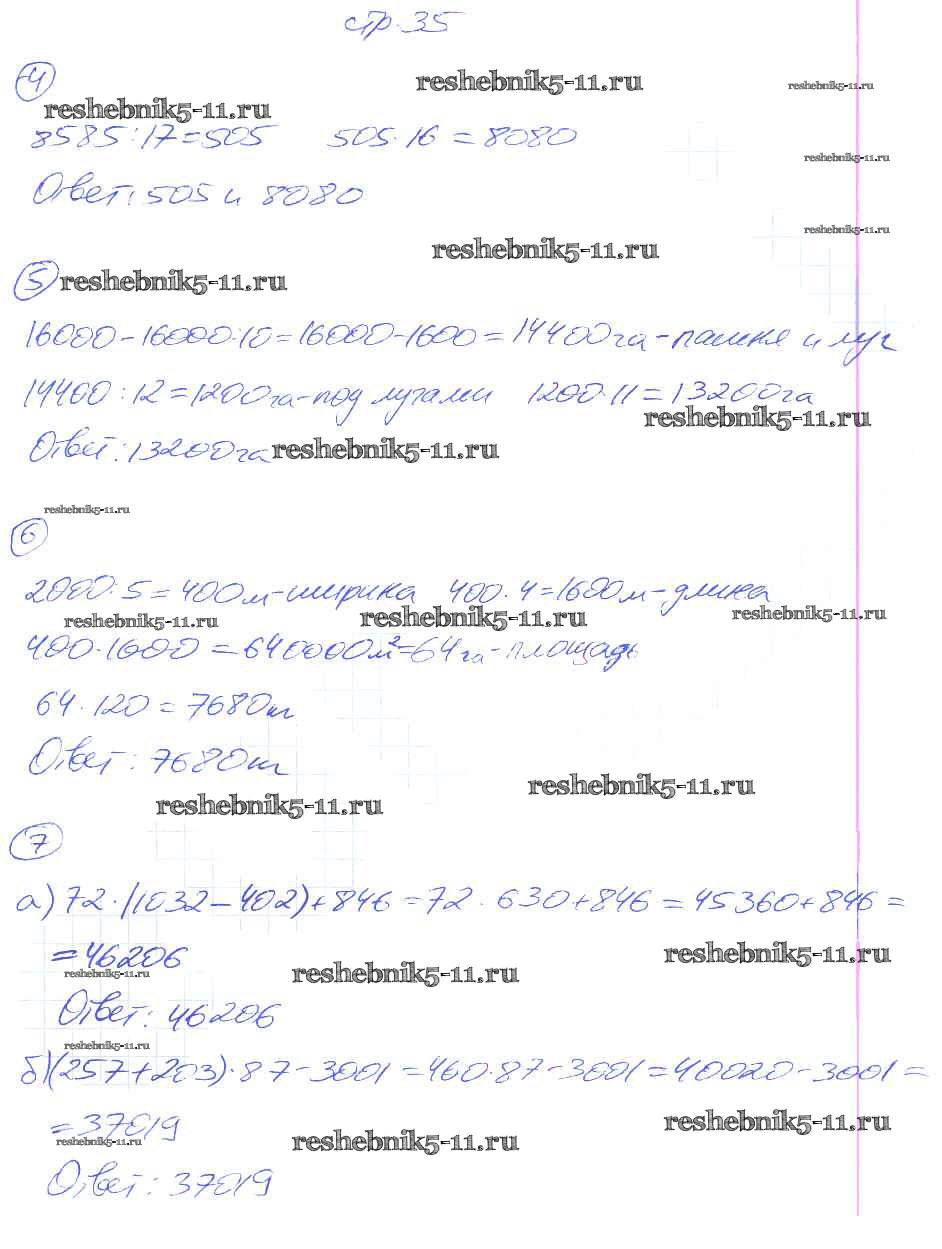 стр. 35
4
reshebnik5-11.ru
reshebnik5-11.ru
reshebnik5-11.ru
8585:17=505 505·16=8080
reshebnik5-11.ru
Ответ: 505 и 8080
reshebnik5-11.ru
reshebnik5-11.ru
5 reshebnik5-11.ru
16000-16000:10=16000-1600=14400га-пашня и луг
14400:12=1200га-под лугами 1200·11=13200га
reshebnik5-11.ru
Ответ: 13200га reshebnik5-11.ru
reshebnik5-11.ru
6
2000:5=400м-ширина 400·4=1600м-длина
reshebnik5-11.ru reshebnik5-11.ru reshebnik5-11.ru
400·1600=640000м²=64га-площадь
64·120=7680т
Ответ: 7680т
reshebnik5-11.ru
reshebnik5-11.ru
7
а) 72·(1032-402)+846=72·630+846=45360+846=
=46206
reshebnik5-11.ru
reshebnik5-11.ru reshebnik5-11.ru
Ответ: 46206
reshebnik5-11.ru
б) (257+203)·87-3001=460·87-3001=40020-3001=
=37019
reshebnik5-11.ru
reshebnik5-11.ru reshebnik5-11.ru
Ответ: 37019